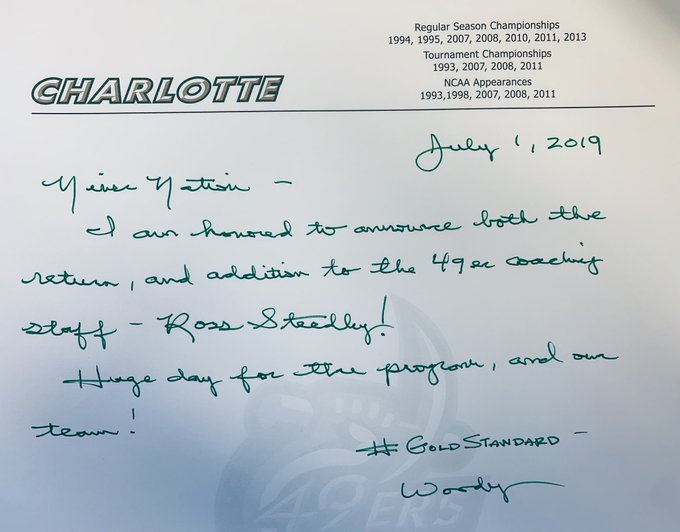 Regular Season Championships
1994, 1995, 2007, 2008, 2010, 2011, 2013
Tournament Championships
1993, 2007, 2008, 2011
NCAA Appearances
1993,1998, 2007, 2008, 2011
CHARLOTTE
July 1, 2019
Niner Nation –
I am honored to announce both the
return, and addition to the 49er coaching
staff – Ross Steedley!
Huge day for the program, and our
team!
#GOLDSTANDARD –
Woody
49ERS